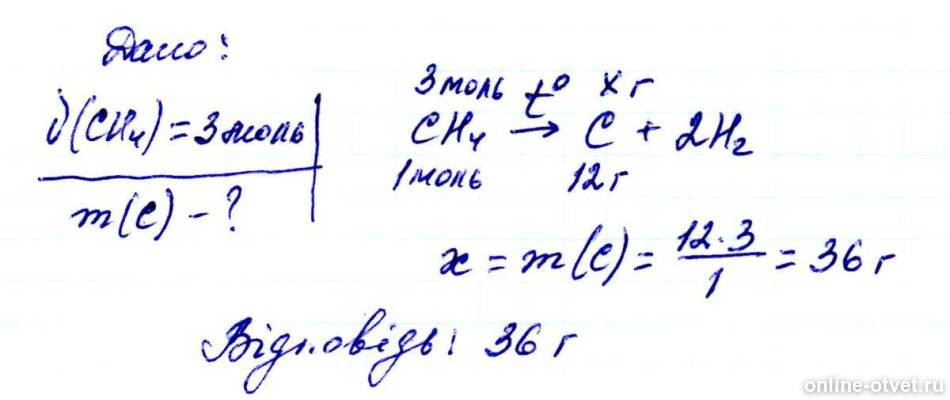 Дано:
ν(CH₄) = 3 моль
m(C) - ?
3 моль t° x г
CH₄ → C + 2H₂
1 моль 12 г
x = m(C) = 12·3/1 = 36 г
Відповідь: 36 г
online-otvet.ru